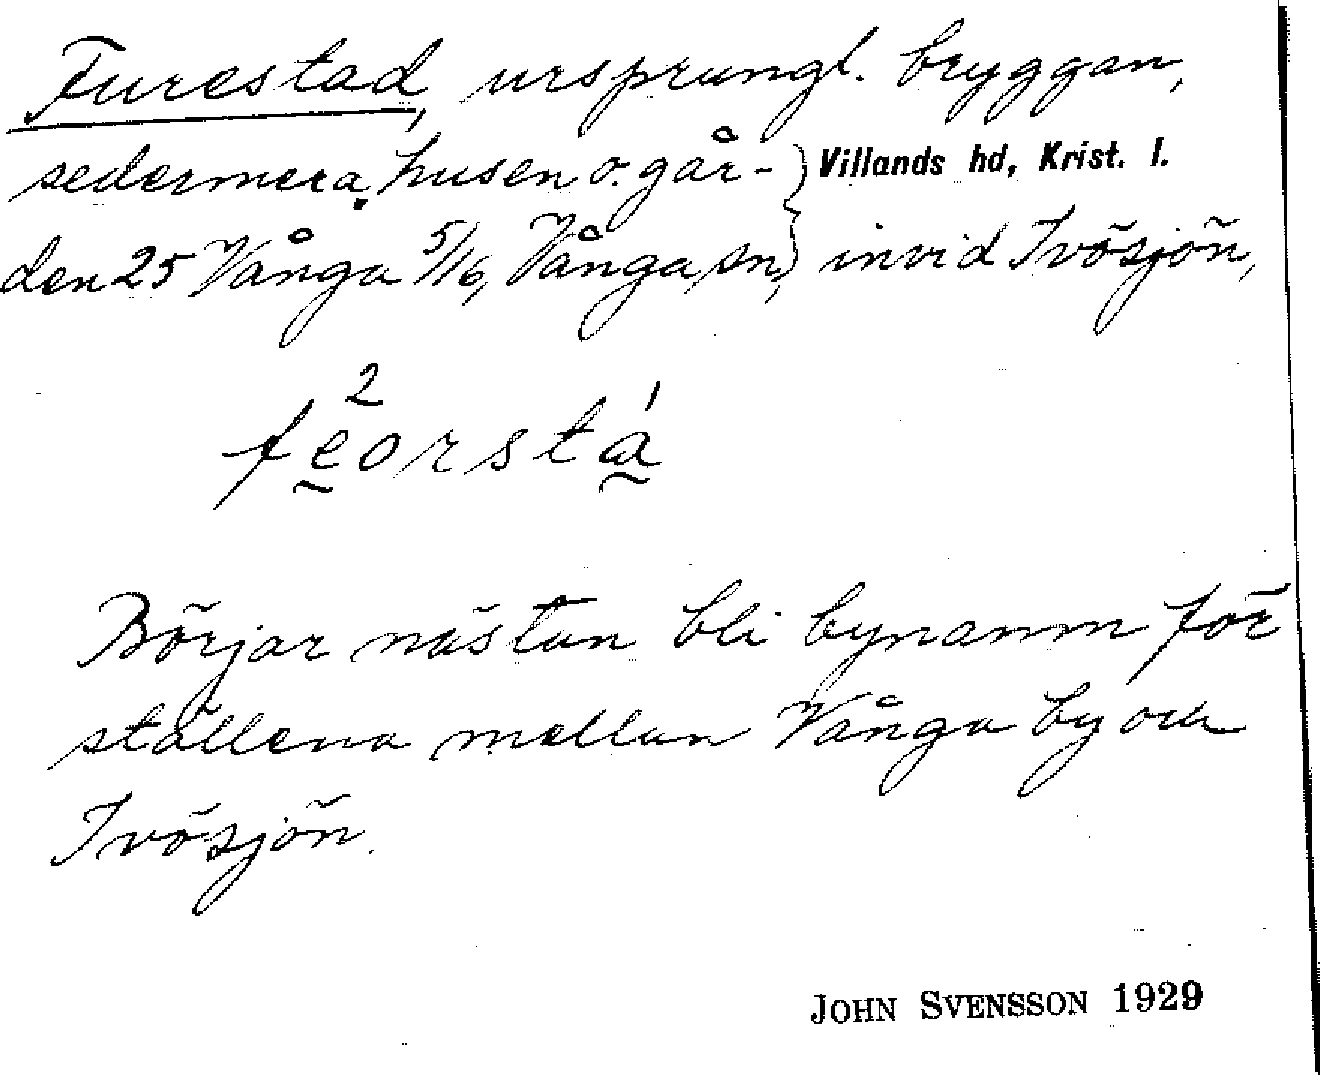 Furestad, ursprungl. bryggan,
sedermera husen o. går-
den 25 Vånga 5/16, Vånga sn, } Villands hd, Krist. l. invid Ivösjön,
2 1
feorsta
Börjar nästan bli bynamn för
ställena mellan Vånga by och
Ivösjön.
JOHN SVENSSON 1929